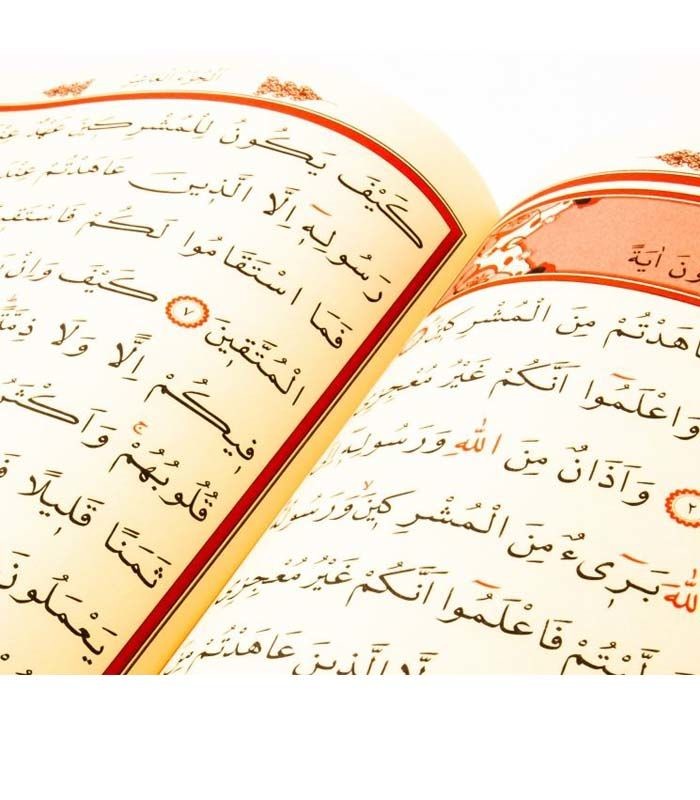 ونَ اٰيَةً
اهَدْتُمْ مِنَ الْمُشْرِكٖينَ
وَاعْلَمُٓوا اَنَّكُمْ غَيْرُ مُعْجِزِي
٢ وَاَذَانٌ مِنَ اللّٰهِ وَرَسُولِهٖٓ
اللّٰهَ بَرٖٓىءٌ مِنَ الْمُشْرِكٖينَۙ وَرَسُولُ
لَّيْتُمْ فَاعْلَمُٓوا اَنَّكُمْ غَيْرُ مُعْجِزِي
لَّا الَّذٖينَ عَاهَدْتُمْ مِنَ
اَلْجُزْءُ الْعَاشِرُ
كَيْفَ يَكُونُ لِلْمُشْرِكٖينَ عَهْدٌ عِنْدَ
رَسُولِهٖٓ اِلَّا الَّذٖينَ عَاهَدْتُمْ عِنْدَ
فَمَا اسْتَقَامُوا لَكُمْ فَاسْتَقٖي
الْمُتَّقٖينَ ٧ كَيْفَ وَاِنْ
فٖيكُمْ اِلًّا وَلَا ذِمَّةً
قُلُوبُهُمْۚ وَاَكْثَرُ
ثَمَنًا قَلٖيلًا
يَعْمَلُونَ